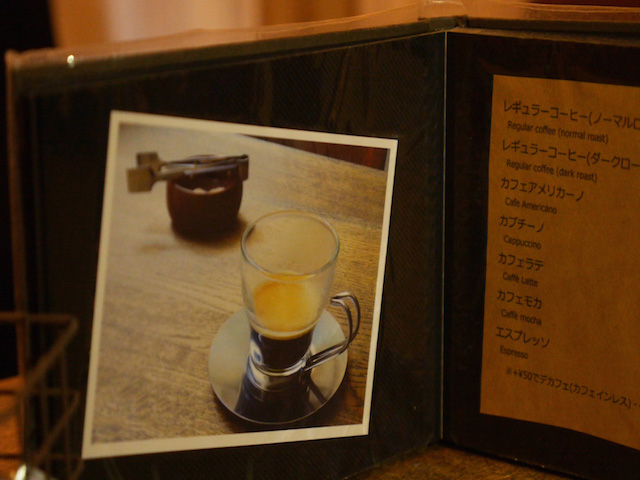 レギュラーコーヒー(ノーマルロ
Regular coffee (normal roast)
レギュラーコーヒー(ダークロー
Regular coffee (dark roast)
カフェアメリカーノ
Cafe Americano
カプチーノ
Cappuccino
カフェラテ
Caffe Latte
カフェモカ
Caffe mocha
エスプレッソ
Espresso
※+¥50でデカフェ(カフェインレス)・